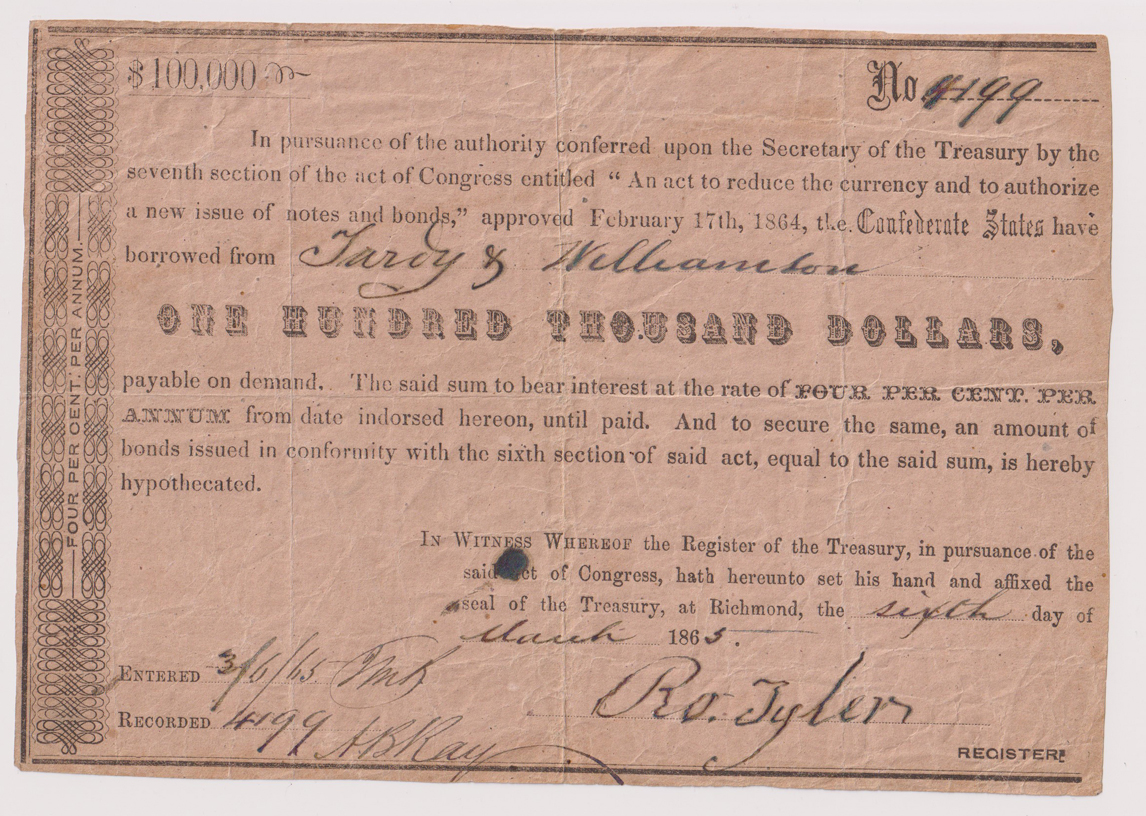 $100,000
No 4199
In pursuance of the authority conferred upon the Secretary of the Treasury by the
seventh section of the act of Congress entitled "An act to reduce the currency and to authorize
a new issue of notes and bonds," approved February 17th, 1864, the Confederate States have
borrowed from Tardy & Williamson
ONE HUNDRED THOUSAND DOLLARS,
payable on demand. The said sum to bear interest at the rate of FOUR PER CENT. PER
ANNUM from date indorsed hereon, until paid. And to secure the same, an amount of
bonds issued in conformity with the sixth section of said act, equal to the said sum, is hereby
hypothecated.
FOUR PER CENT. PER ANNUM.
IN WITNESS WHEREOF the Register of the Treasury, in pursuance of the
said act of Congress, hath hereunto set his hand and affixed the
seal of the Treasury, at Richmond, the sixth day of
March 1865.
ENTERED 3/6/65
Ro. Tyler
RECORDED 4199
A B Kay
REGISTER.